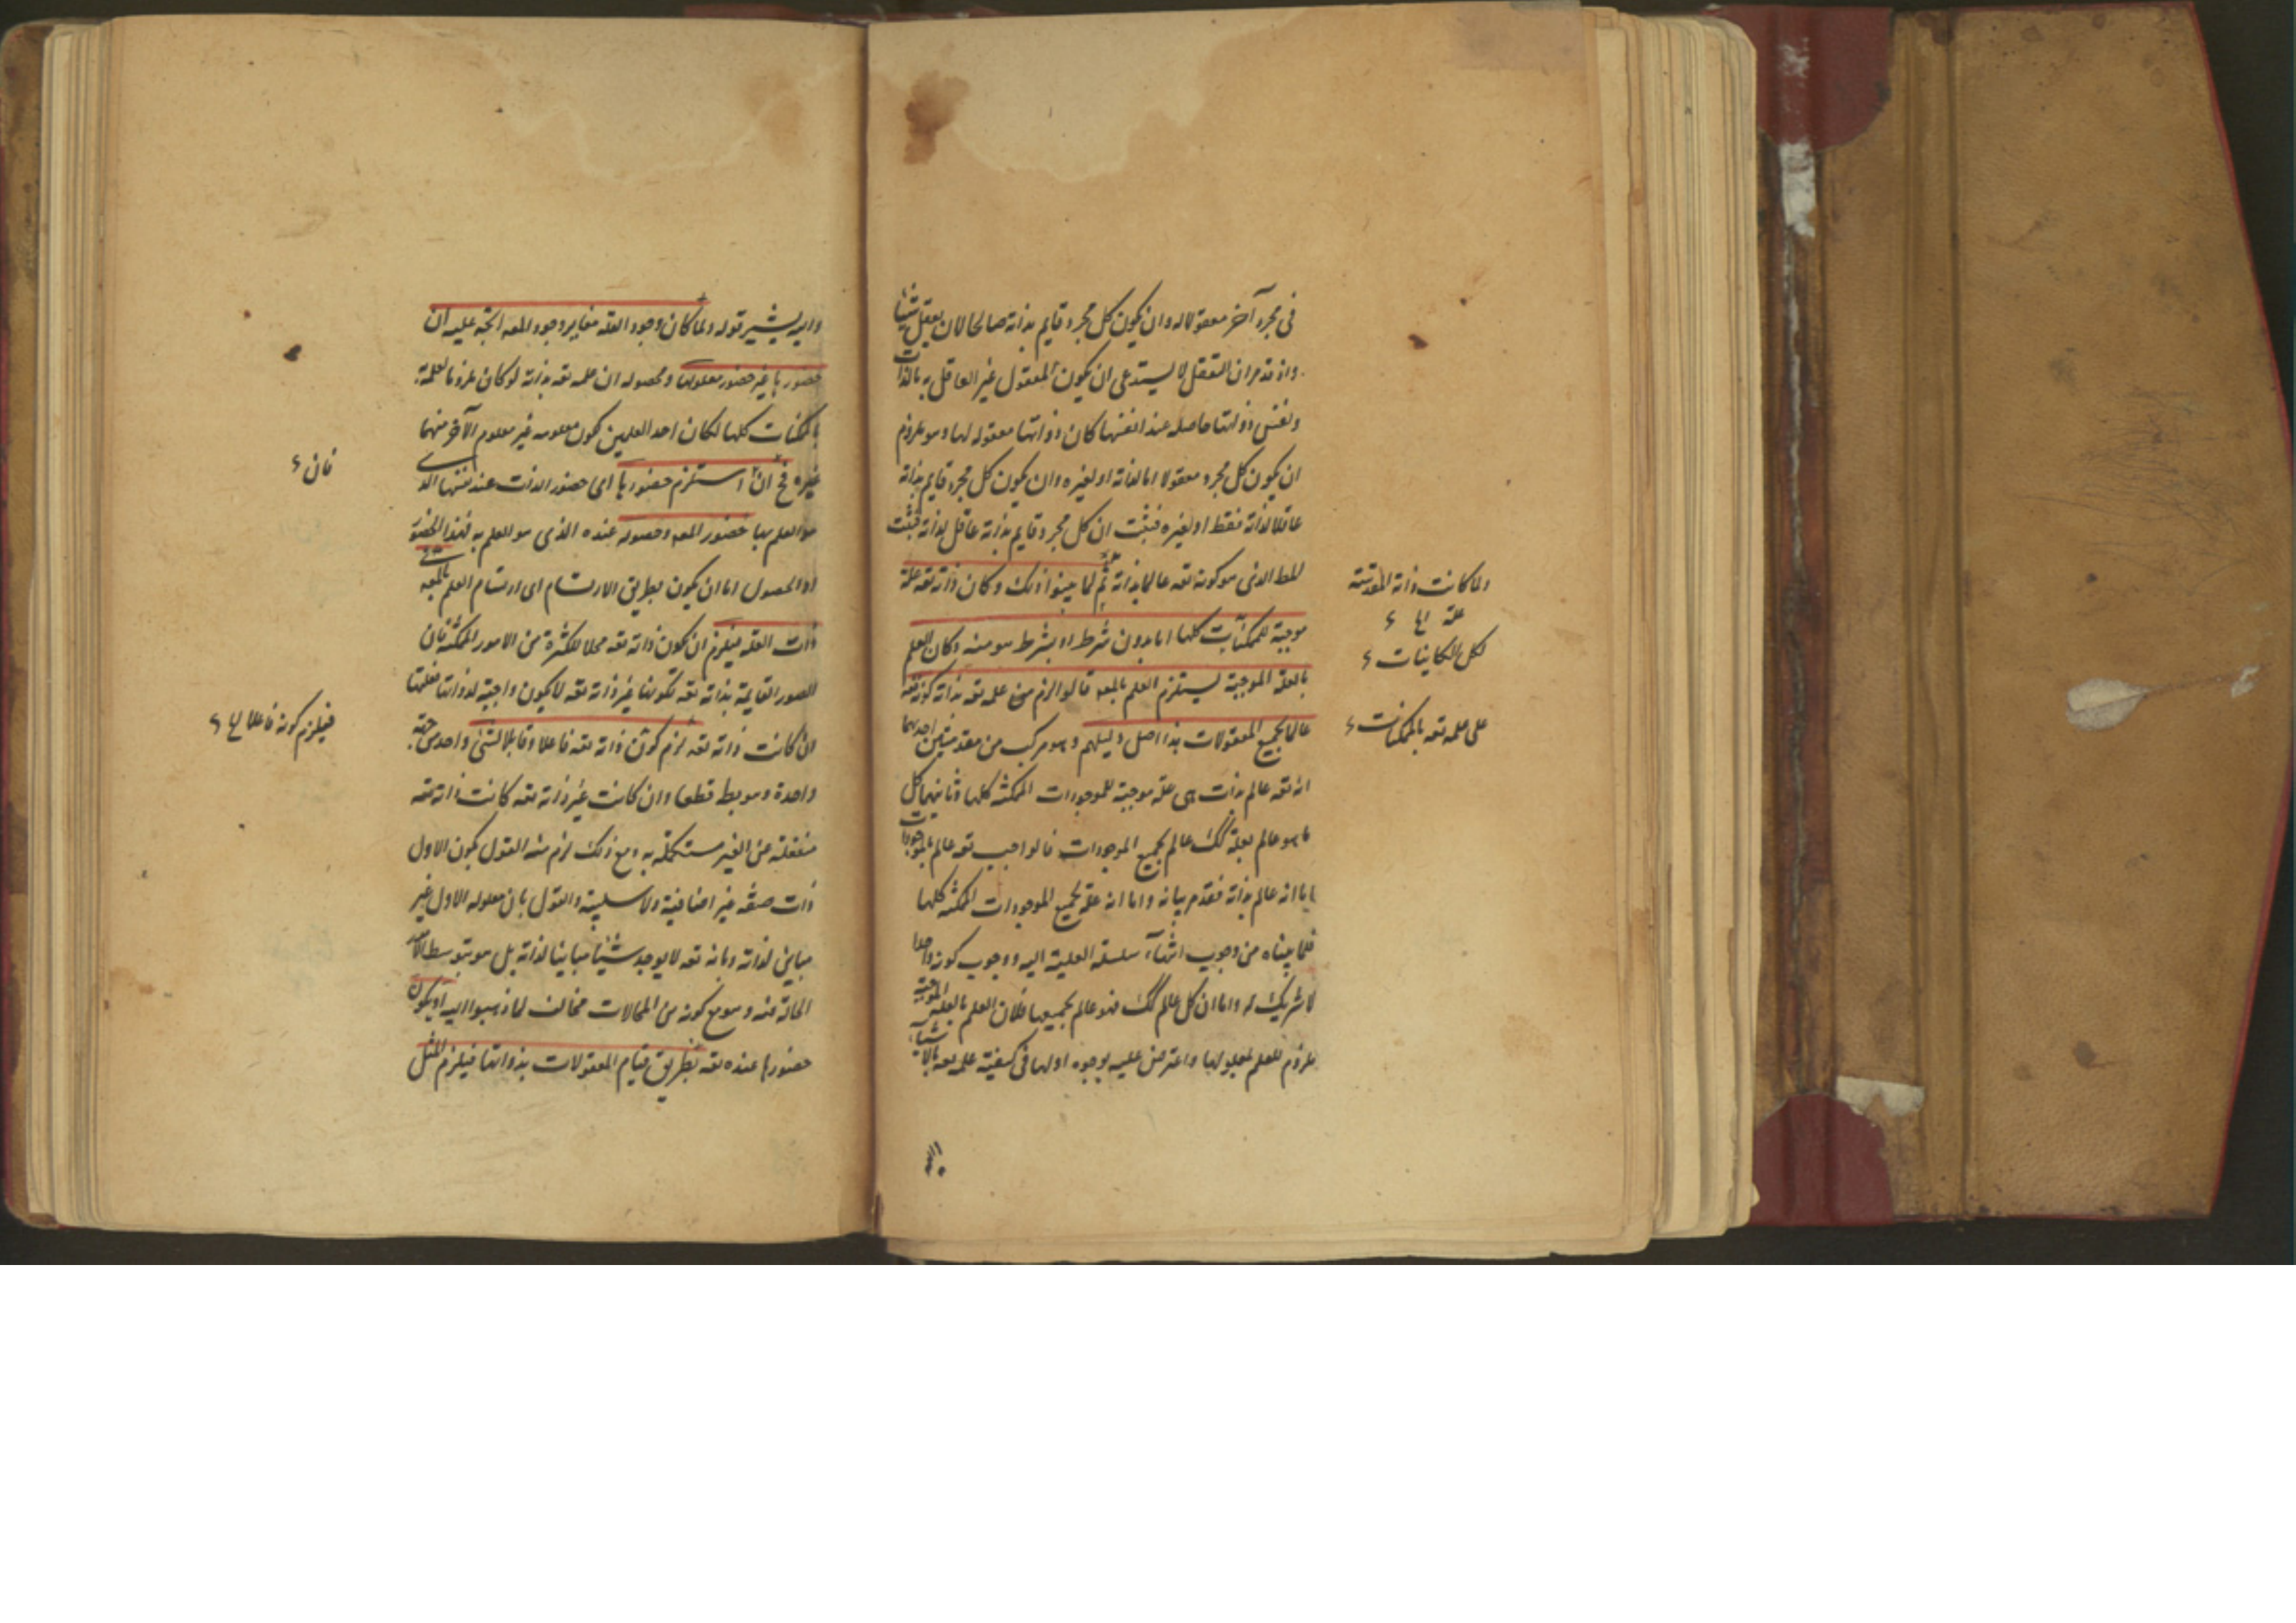 فى مجرد آخر معقولا له وان يكون كل مجرد قايم بذاته صالحا لان يعقل شيئا
واذ قدمر ان التعقل لا يستدعى ان يكون المعقول غير العاقل به بالذات
ونفس ذواتها حاصله عند انفسها كان ذواتها معقوله لها وهو ملزوم
ان يكون كل مجرد معقولا اما لذاته او لغيره وان يكون كل مجرد قايم بذاته
عاقلا لذاته فقط او لغيره فثبت ان كل مجرد قايم بذاته عاقل لذاته فثبت
المط الذى هو كونه تعه عالما بذاته ثم لما بينوا ذلك وكان ذاته تعه علة
موجبة للممكنات كلها اما بدون شرط او بشرط هو منه وكان العلم
بالعلة الموجبة يستلزم العلم بالمعه قالوا لزم من علمه تعه بذاته كونه تعه
عالما بجميع المعقولات هذا اصل دليلهم وهو مركب من مقدمتين احديهما
انه تعه عالم بذات هى علة موجبة للموجودات الممكنه كلها وثانيهما كل
ما هو عالم بعلة كك عالم بجميع الموجودات فالواجب تعه عالم بالموجودات
اما انه عالم بذاته فقد مر بيانه واما انه علة لجميع الموجودات الممكنه كلها
فلما بيناه من وجوب انتهاء سلسلة العلية اليه ووجوب كونه واحدا
لا شريك له واما ان كل عالم كك فهو عالم بجميعها فلان العلم بالعلة الموجبة
ملزوم للعلم بمعلولها واعترض عليه بوجوه اولها فى كيفية علمه تعه بالاشياء
ولما كانت ذاته المقدسة
علة لها
لكل الكاينات
على علمه تعه بالممكنات
واليه يشير قوله ولما كان وجود العلة مغاير وجود المعه اتجه عليه ان
حضورها غير حضور معلولها ومحصوله ان علمه تعه بذاته لو كان ملزوما لعلمه
بالممكنات كلها لكان احد العلمين كون معلومه غير معلوم الآخر منهما
غيره فح ان استلزم حضورها اى حضور الذات عند نفسها الذى
هو العلم بها حضور المعه وحصوله عنده الذى هو العلم به فهذا الحضور
او الحصول اما ان يكون بطريق الارتسام اى ارتسام العلم بالمعه فى
ذات العلة فيلزم ان يكون ذاته تعه محلا للكثرة من الامور الممكنة فان
الصور القايمة بذاته تعه لكونها غير ذاته تعه لا يكون واجبة لذواتها فعلتها
ان كانت ذاته تعه لزم كون ذاته تعه فاعلا وقابلا لشئ واحد من جهة
واحدة وهو بط قطعا وان كانت غير ذاته تعه كانت ذاته تعه
منفعلة عن الغير مستكملة به ومع ذلك لزم منه القول بكون الاول
ذات صفة غير اضافية ولا سلبية والقول بان معلوله الاول غير
مباين لذاته وبانه تعه لا يوجد شيئا مباينا لذاته بل هو بتوسط الامور
الحالة منه وهو مع كونه من المحالات مخالف لما ذهبوا اليه او يكون
حضورها عنده تعه بطريق قيام المعقولات بذواتها فيلزم المثل
فان
فيلزم كونه فاعلا لها